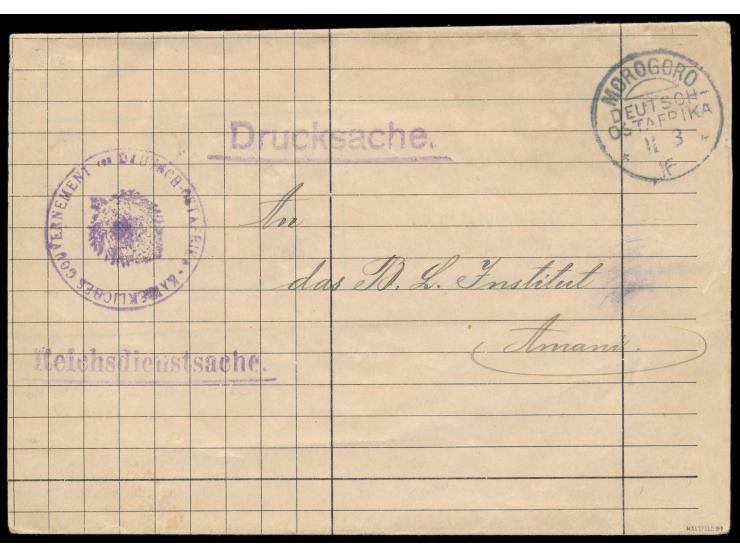 MOROGORO
DEUTSCH-
OSTAFRIKA
11 3
Drucksache.
KAISERLICHES GOUVERNEMENT DEUTSCH-OSTAFRIKA
An
das B. L. Institut
Amani.
Reichsdienstsache.